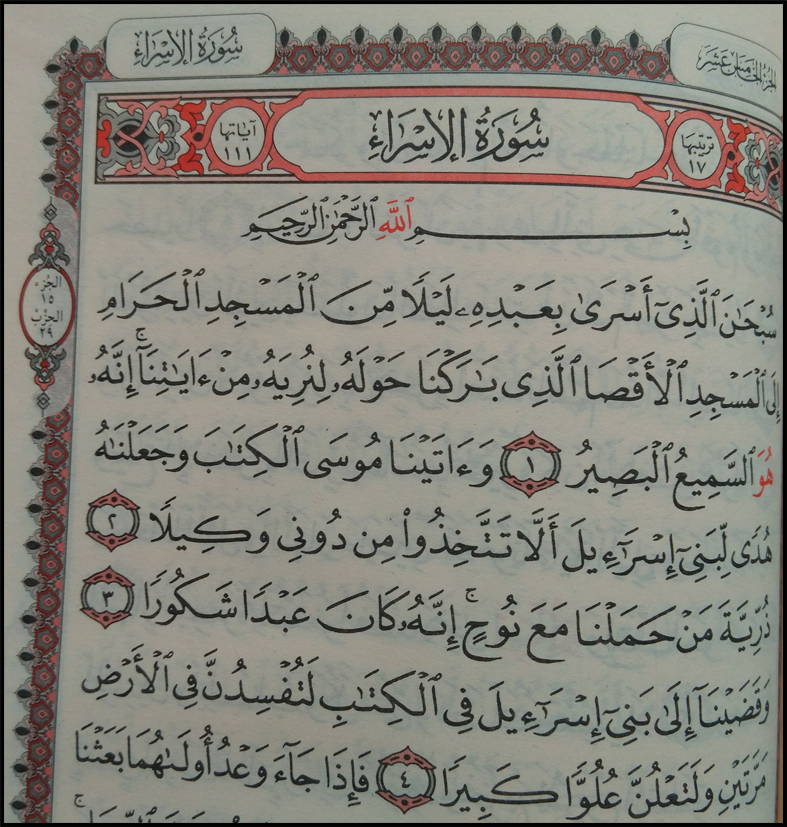 سُورَةُ الإِسْرَاءِ
الجزء الخامس عشر
ترتيبها ١٧
سُورَةُ الإِسْرَاءِ
آياتها ١١١
بِسْمِ ٱللَّهِ ٱلرَّحْمَٰنِ ٱلرَّحِيمِ
سُبْحَٰنَ ٱلَّذِىٓ أَسْرَىٰ بِعَبْدِهِۦ لَيْلًا مِّنَ ٱلْمَسْجِدِ ٱلْحَرَامِ
إِلَى ٱلْمَسْجِدِ ٱلْأَقْصَا ٱلَّذِى بَٰرَكْنَا حَوْلَهُۥ لِنُرِيَهُۥ مِنْ ءَايَٰتِنَآ ۚ إِنَّهُۥ
هُوَ ٱلسَّمِيعُ ٱلْبَصِيرُ ١ وَءَاتَيْنَا مُوسَى ٱلْكِتَٰبَ وَجَعَلْنَٰهُ
هُدًى لِّبَنِىٓ إِسْرَٰٓءِيلَ أَلَّا تَتَّخِذُوا۟ مِن دُونِى وَكِيلًا ٢
ذُرِّيَّةَ مَنْ حَمَلْنَا مَعَ نُوحٍ ۚ إِنَّهُۥ كَانَ عَبْدًا شَكُورًا ٣
وَقَضَيْنَآ إِلَىٰ بَنِىٓ إِسْرَٰٓءِيلَ فِى ٱلْكِتَٰبِ لَتُفْسِدُنَّ فِى ٱلْأَرْضِ
مَرَّتَيْنِ وَلَتَعْلُنَّ عُلُوًّا كَبِيرًا ٤ فَإِذَا جَآءَ وَعْدُ أُولَىٰهُمَا بَعَثْنَا
الجزء
١٥
الحزب
٢٩